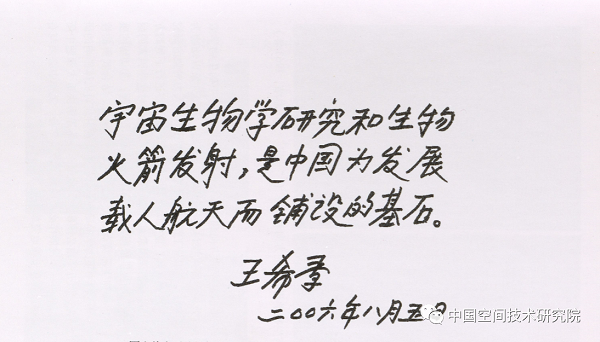 宇宙生物学研究和生物
火箭发射，是中国为发展
载人航天而铺设的基石。
王希季
二〇〇六年八月五日
中国空间技术研究院